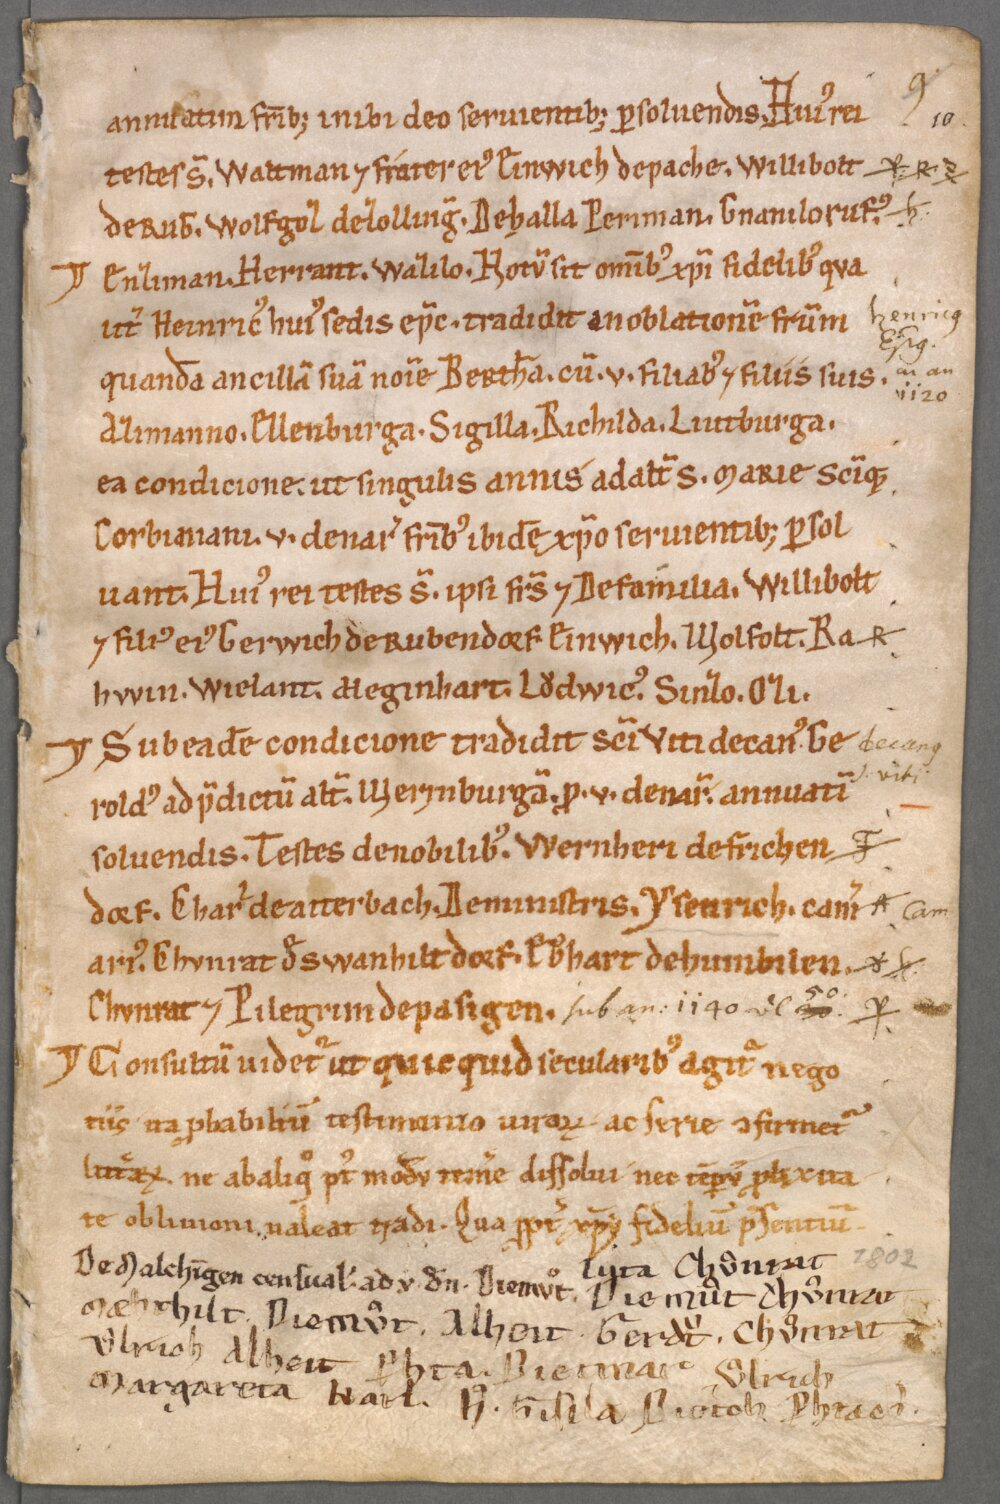 9
10
annuatim fr̄ib; inibi deo seruientib; ꝑsoluendis. Huiꝰ rei
testes s̄. Waltman ⁊ frater eiꝰ Einwich de pache. Willibolt
de RUB. Wolfgol de lollinḡ. De halla Perman. Gnanilo rufꝰ.
Enliman. Herrant. Walilo. Notū sit om̄ibꝰ xp̄i fidelibꝰ qva
lit̄ Heinricꝰ huiꝰ sedis ep̄c. tradidit in oblationē fr̄um
henricꝰ
Ep̄g.
quandā ancillā suā noīe Berthā. cū. v. filiabꝰ ⁊ filiis suis.
in an
1120
Alimanno. Ellenburga. Sigilla. Richilda. Liutburga.
ea condicione. ut singulis annis ad alt̄ S. Marie Sc̄iq̨
Corbiniani. v. denar̄ fr̄ibꝰ ibidē xp̄o seruientib; ꝑsol
uant. Huiꝰ rei testes s̄. ipsi fr̄s ⁊ De familia. Willibolt
⁊ filiꝰ eiꝰ Gerwich de Rubendorf. Einwich. Wolfolt. Ra
hwin. Wielant. Meginhart. Lůdwicꝰ. Sinilo. Oli.
Sub eadē condicione tradidit sc̄i Viti decanꝰ. Ge
decanꝰ
viti
roldꝰ ad p̄dictū alt̄. Merinburgā. ꝓ. v. denar̄. annuatī
soluendis. Testes de nobilibꝰ. Wernheri de frichen
dorf. Ekhar̄ de atterbach. De ministris. Ysenrich. cam̄
Cam
ariꝰ. Chvnrat d̄ Swanhiltdorf. Eb̄hart de humbilen.
Chvnrat ⁊ Pilegrim de pasigen. sub an: 1140 vel 50.
Consultū uidet᷑ ut quicquid secularibꝰ agit᷑ nego
tiis ita ꝓbabiliū testimonio uiroꝝ ac serie ꝯfirmet᷑
litt̄aꝝ. ne ab aliqͦ pꝰt modū tem̄e dissolui nec tēporū ꝓlixita
te obliuioni ualeat tradi. Qua ꝓpt̄ xp̄i fideliū p̄sentiū
De Malchīgen censual̄ ad v dn̄. Diemůt. Lyta Chůnrat
1802
Mæhthilt. Diemůt. Alheit. Diemůt Chůnrat
Gerdt̄. Chůnrat
Vlrich Alheit Phta. Dietmar Vlrich
Margareta Karl. H. Gisila